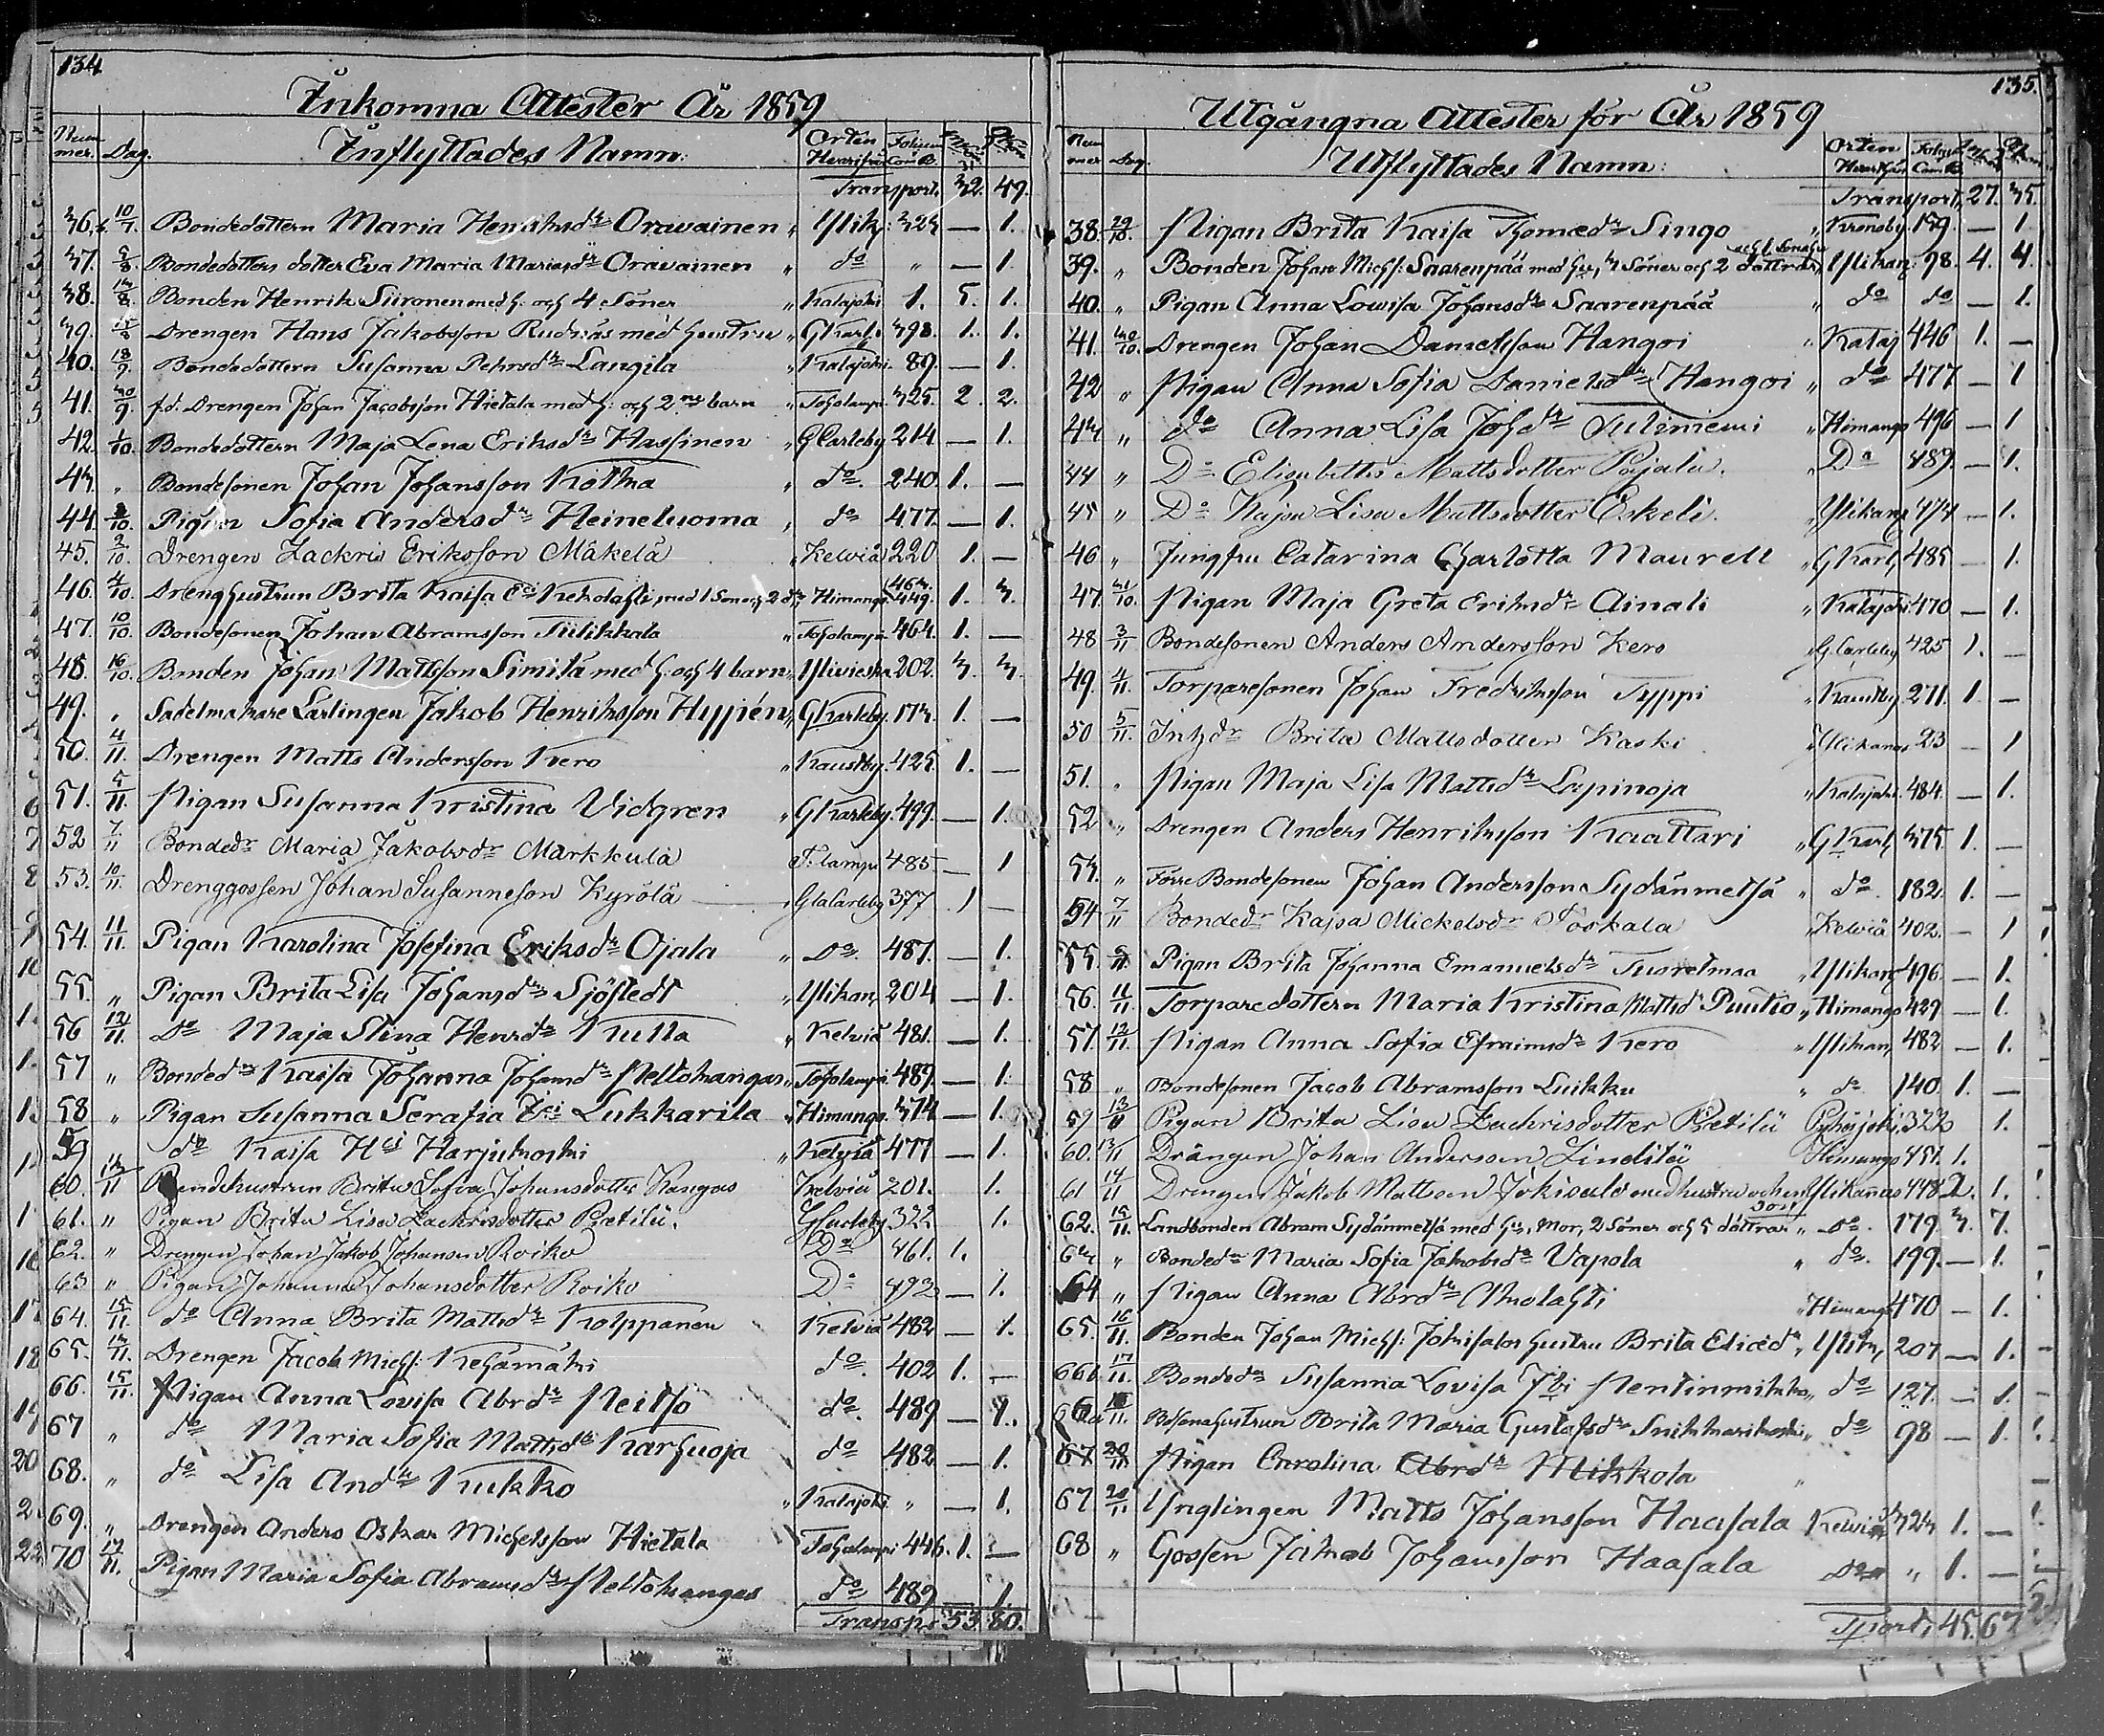 134
Inkomna Attester År 1859
Nummer. Dag. Inflyttades Namn: Orten Hvarifrån Folium Com.B.
Transport. 32. 49.
36. 10/7. Bondedottern Maria Henriksdr Oravainen " Ylik, 323 — 1.
37. 5/8. Bondedotters dotter Eva Maria Mariasdr Oravainen " do " — 1.
38. 14/8. Bonden Henrik Siironen med h: och 4 Söner " Kalajoki 1. 5. 1.
39. Drengen Hans Jakobsson Rudnäs med hustru " GKarl. 398. 1. 1.
40. 18/9. Bondedottern Susanna Pehrsdr Langila " Kalajoki. 89. — 1.
41. 30/9. f.d. Drengen Johan Jacobsson Hietala med h: och 2ne barn " Toholampi. 325. 2. 2.
42. 1/10. Bondedottern Maja Lena Eriksdr Hassinen " GCarleby 214 — 1.
43. " Bondesonen Johan Johansson Kotka " do. 240. 1. —
44. 2/10. Pigan Sofia Andersdr Heineluoma " do 477. — 1.
45. 2/10. Drengen Zackris Eriksson Mäkelä " Kelviå 220 1. —
46. 4/10. Dreng hustrun Brita Kaisa Kekolahti, med 1 Son och 2 dr, Himango. 463. 449. 1. 3.
47. 10/10. Bondesonen Johan Abramsson Tiilikkala " Toholampi. 464. 1. —
48. 16/10. Bonden Johan Mattsson Similä med h: och 4 barn " Ylivieska. 202. 3. 3.
49. " Sadelmakare Lärlingen Jakob Henriksson Hyppén " GKarleby. 173. 1. —
50. 4/11. Drengen Matts Andersson Kero " Kaustby. 425. 1. —
51. 5/11. Pigan Susanna Kristina Vidgren " GKarleby. 499. — 1.
52 7/11 Bondedr Maria Jakobsdr Markkula T:lampi 485 — 1
53. 10/11. Drenggossen Johan Susanneson Kyrölä " GlaCarleby 377 1 —
54. 11/11. Pigan Karolina Josefina Eriksdr Ojala " Do. 487. — 1.
55. " Pigan Brita Lisa Johansdr Sjöstedt " Ylikan, 204 — 1.
56 12/11. Do Maja Stina Henrdr Kulla " Kelviå 481. — 1.
57 " Bondedr Kaisa Johanna Johansdr Peltokangas " Toholampi. 489. — 1.
58 " Pigan Susanna Serafia Lukkarila " Himango. 374 — 1.
59 " do Kaisa Harjukoski " Kelviå 477 — 1.
60. 14/11 Bondehustrun Brita Sofia Johansdotter Kangas Kelviå 201. 1.
61. " Pigan Brita Lisa Zachrisdotter Pretilä. GCarleby 322 1.
62. " Drengen Johan Jakob Johansson Roiko Do 461. 1.
63 " Pigan Johanna Johansdotter Roiko Do 493 — 1.
64. 15/11. do Anna Brita Mattsdr Kolppanen Kelviå 482 — 1.
65. 14/11. Drengen Jacob Michs: Kehämäki do. 402 1. —
66. 15/11. Pigan Anna Lovisa Abrdr Peitso do. 489 — 1.
67 " do Maria Sofia Mattsdr Karhuoja do 482 — 1.
68. " do Lisa Anddr Kukko " Kalajoki. " — 1.
69. " Drengen Anders Oskar Michelsson Hietala Toholampi 446. 1. —
70 17/11. Pigan Maria Sofia Abramsdr Peltokangas do 489 1.
Transp: 53. 80.
135.
Utgångna Attester för År 1859
Nummer Dag. Utflyttades Namn: Orten Hvartifrån Folium Com.B.
Transport, 27. 35.
38. 29/10. Pigan Brita Kaisa Thomædr Singo " Kronoby 159. — 1.
39. " Bonden Johan Michs: Saarenpää med hu, 3 Söner och 2 döttrar och 1 Sonahu Ylikan, 98. 4. 4.
40. " Pigan Anna Lowisa Johansdr Saarenpää " do do — 1.
41. 30/10. Drengen Johan Danielsson Hangoi " Kalaj 446 1. —
42 " Pigan Anna Sofia Danielsdr Hangoi " do 477 — 1
43 " do Anna Lisa Johdr Juliniemi " Himango 496 — 1
44 " Do Elisabetha Mattsdotter Pajala. " Do 489. — 1.
45 " Do Kajsa Lisa Mattsdotter Eskeli. " Ylikang 474 — 1.
46 " Jungfru Catarina Charlotta Maurell " GKarl, 485 — 1.
47. 31/10. Pigan Maja Greta Eriksdr Ainali " Kalajoki 470 — 1.
48 3/11 Bondesonen Anders Andersson Kero " G.Carleby 425 1. —
49. 4/11. Torparesonen Johan Fredriksson Typpi " Kaustby 271. 1. —
50 5/11. Inhdr Brita Mattsdotter Kaski " Ylikang 23 — 1
51. " Pigan Maja Lisa Mattsdr Lapinoja " Kalajoki. 484. — 1.
52 " Drengen Anders Henriksson Kaattari " GKarl, 375 1. —
53. " Förre Bondesonen Johan Andersson Sydänmetsä " do. 182. 1. —
54 7/11 Bondedr Kajsa Mickelsdr Poskala " Kelviä 402. — 1
55. Pigan Brita Johanna Emanuelsdr Tuoretmaa " Ylikang 496. — 1.
56. 11/11. Torparedottern Maria Kristina Mattsdr Puutio " Himango 429 — 1.
57. 12/11. Pigan Anna Sofia Efraimsdr Kero " Ylikan, 482 — 1.
58 " Bondesonen Jacob Abramsson Luikku " do 140. 1. —
59 13/11 Pigan Brita Lisa Zachrisdotter Pretilä Pyhäjoki, 322 1.
60. 13/11 Drängen Johan Andersson Lindilä Himango 451. 1.
61 14/11 Drengen Jakob Mattson Jokisalo med hustru och en son Ylikannas 448 2. 1.
62. 15/11. Landbonden Abram Sydänmetsä med hu, Mor, 2 Söner och 5 döttrar " Do. 179. 3. 7.
63 " Bondedr Maria Sofia Jakobsdr Vapola " do. 199. — 1.
64 " Pigan Anna Abrdr Aholahti " Himang 470 — 1.
65. 16/11. Bonden Johan Michs: Jokisalos hustru Brita Eliædr " Ylik, 207 — 1.
66b. 17/11. Bondedr Susanna Lovisa Pentinmikko " do 127. — 1.
66a 18/11. Bdsonahustrun Brita Maria Gustafsdr Snikkarikoski " do 98 — 1.
67 20/11 Pigan Carolina Abrdr Mikkola "
67 20/11 Ynglingen Matts Johansson Haasala Kelviå 323 1. —
68 " Gossen Jakob Johansson Haasala Do " 1. —
Tport, 45. 67